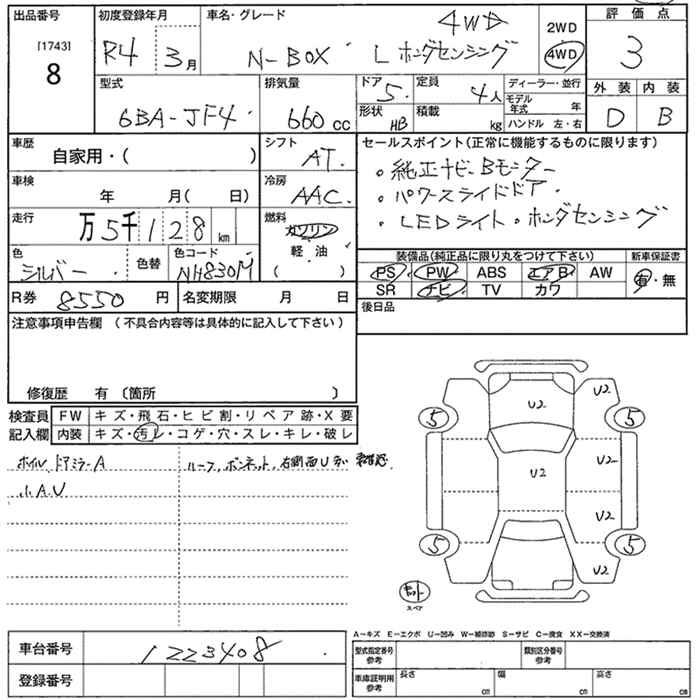 出品番号 [1743] 8
初度登録年月 R4 3月
車名・グレード N-BOX L ホンダセンシング 4WD
2WD
4WD
評価点 3
外装 D 内装 B
型式 6BA-JF4
排気量 660cc
ドア 5
定員 4人
形状 HB
積載 kg
ディーラー・並行
モデル年式 年
ハンドル 左・右
車歴 自家用・( )
シフト AT
車検 年 月( 日)
冷房 AAC
走行 万5千128km
燃料 ガソリン
軽油
( )
色 シルバー
色替
色コード NH830M
R券 8550円
名変期限 月 日
セールスポイント(正常に機能するものに限ります)
。純正ナビ、Bモニター
。パワースライドドア
。LEDライト。ホンダセンシング
装備品(純正品に限り丸をつけて下さい)
新車保証書
PS PW ABS エアB AW
有・無
SR ナビ TV カワ
後日品
注意事項申告欄(不具合内容等は具体的に記入して下さい)
修復歴 有 〔箇所 〕
検査員記入欄
FW キズ・飛石・ヒビ割・リペア跡・X要
内装 キズ・汚レ・コゲ・穴・スレ・キレ・破レ
ホイル、ドアミラーA
小A.U
ルーフ、ボンネット、右側面Uボ
U2 U2
5 5
U2 U2
U2
5 5
U2
スペア
A−キズ E−エクボ U−凹み W−補修跡 S−サビ C−腐食 XX−交換済
車台番号 1223408
登録番号
型式指定番号 参考
類別区分番号 参考
車庫証明用 参考
長さ cm
幅 cm
高さ cm